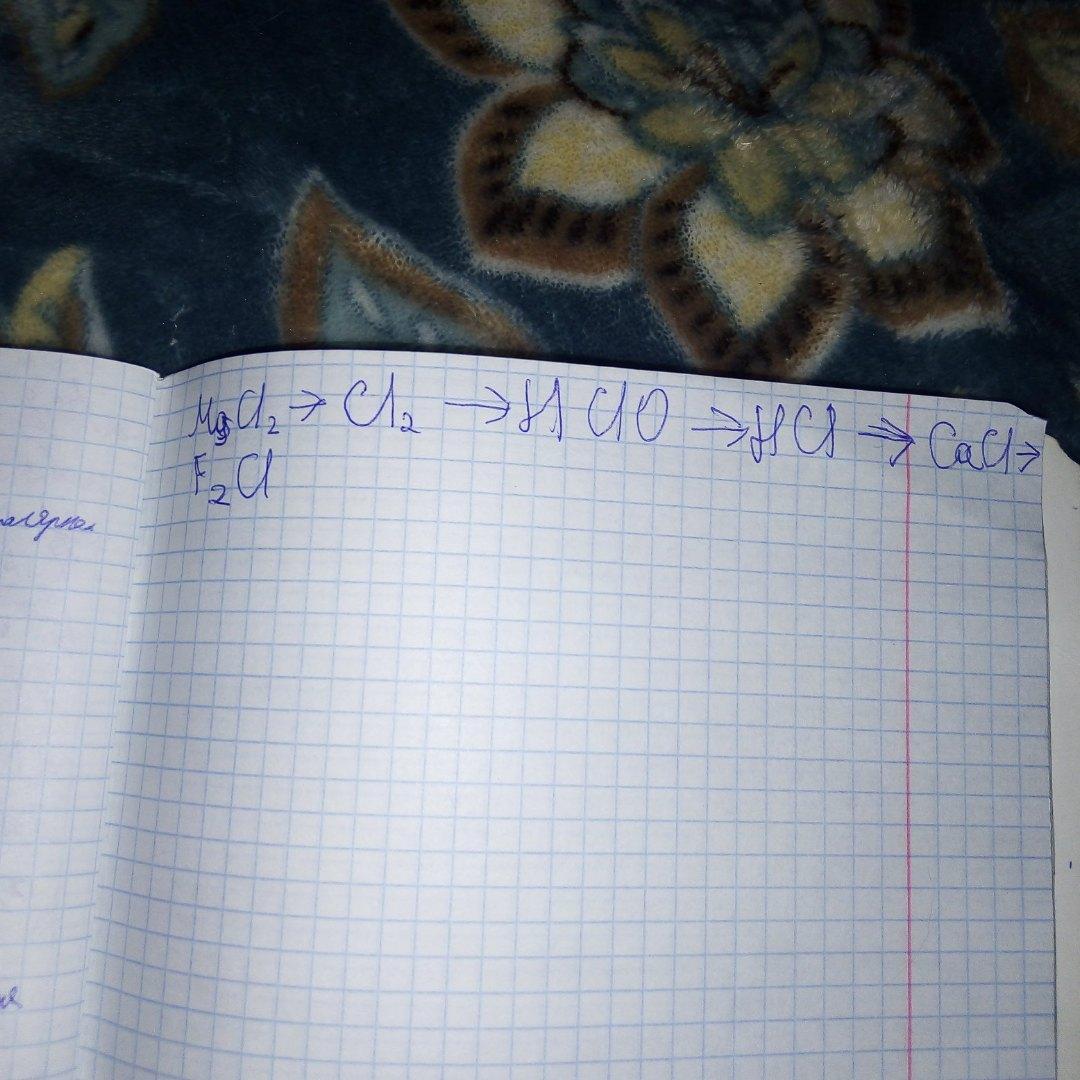 MgCl₂ → Cl₂ → HClO → HCl → CaCl →
F₂Cl